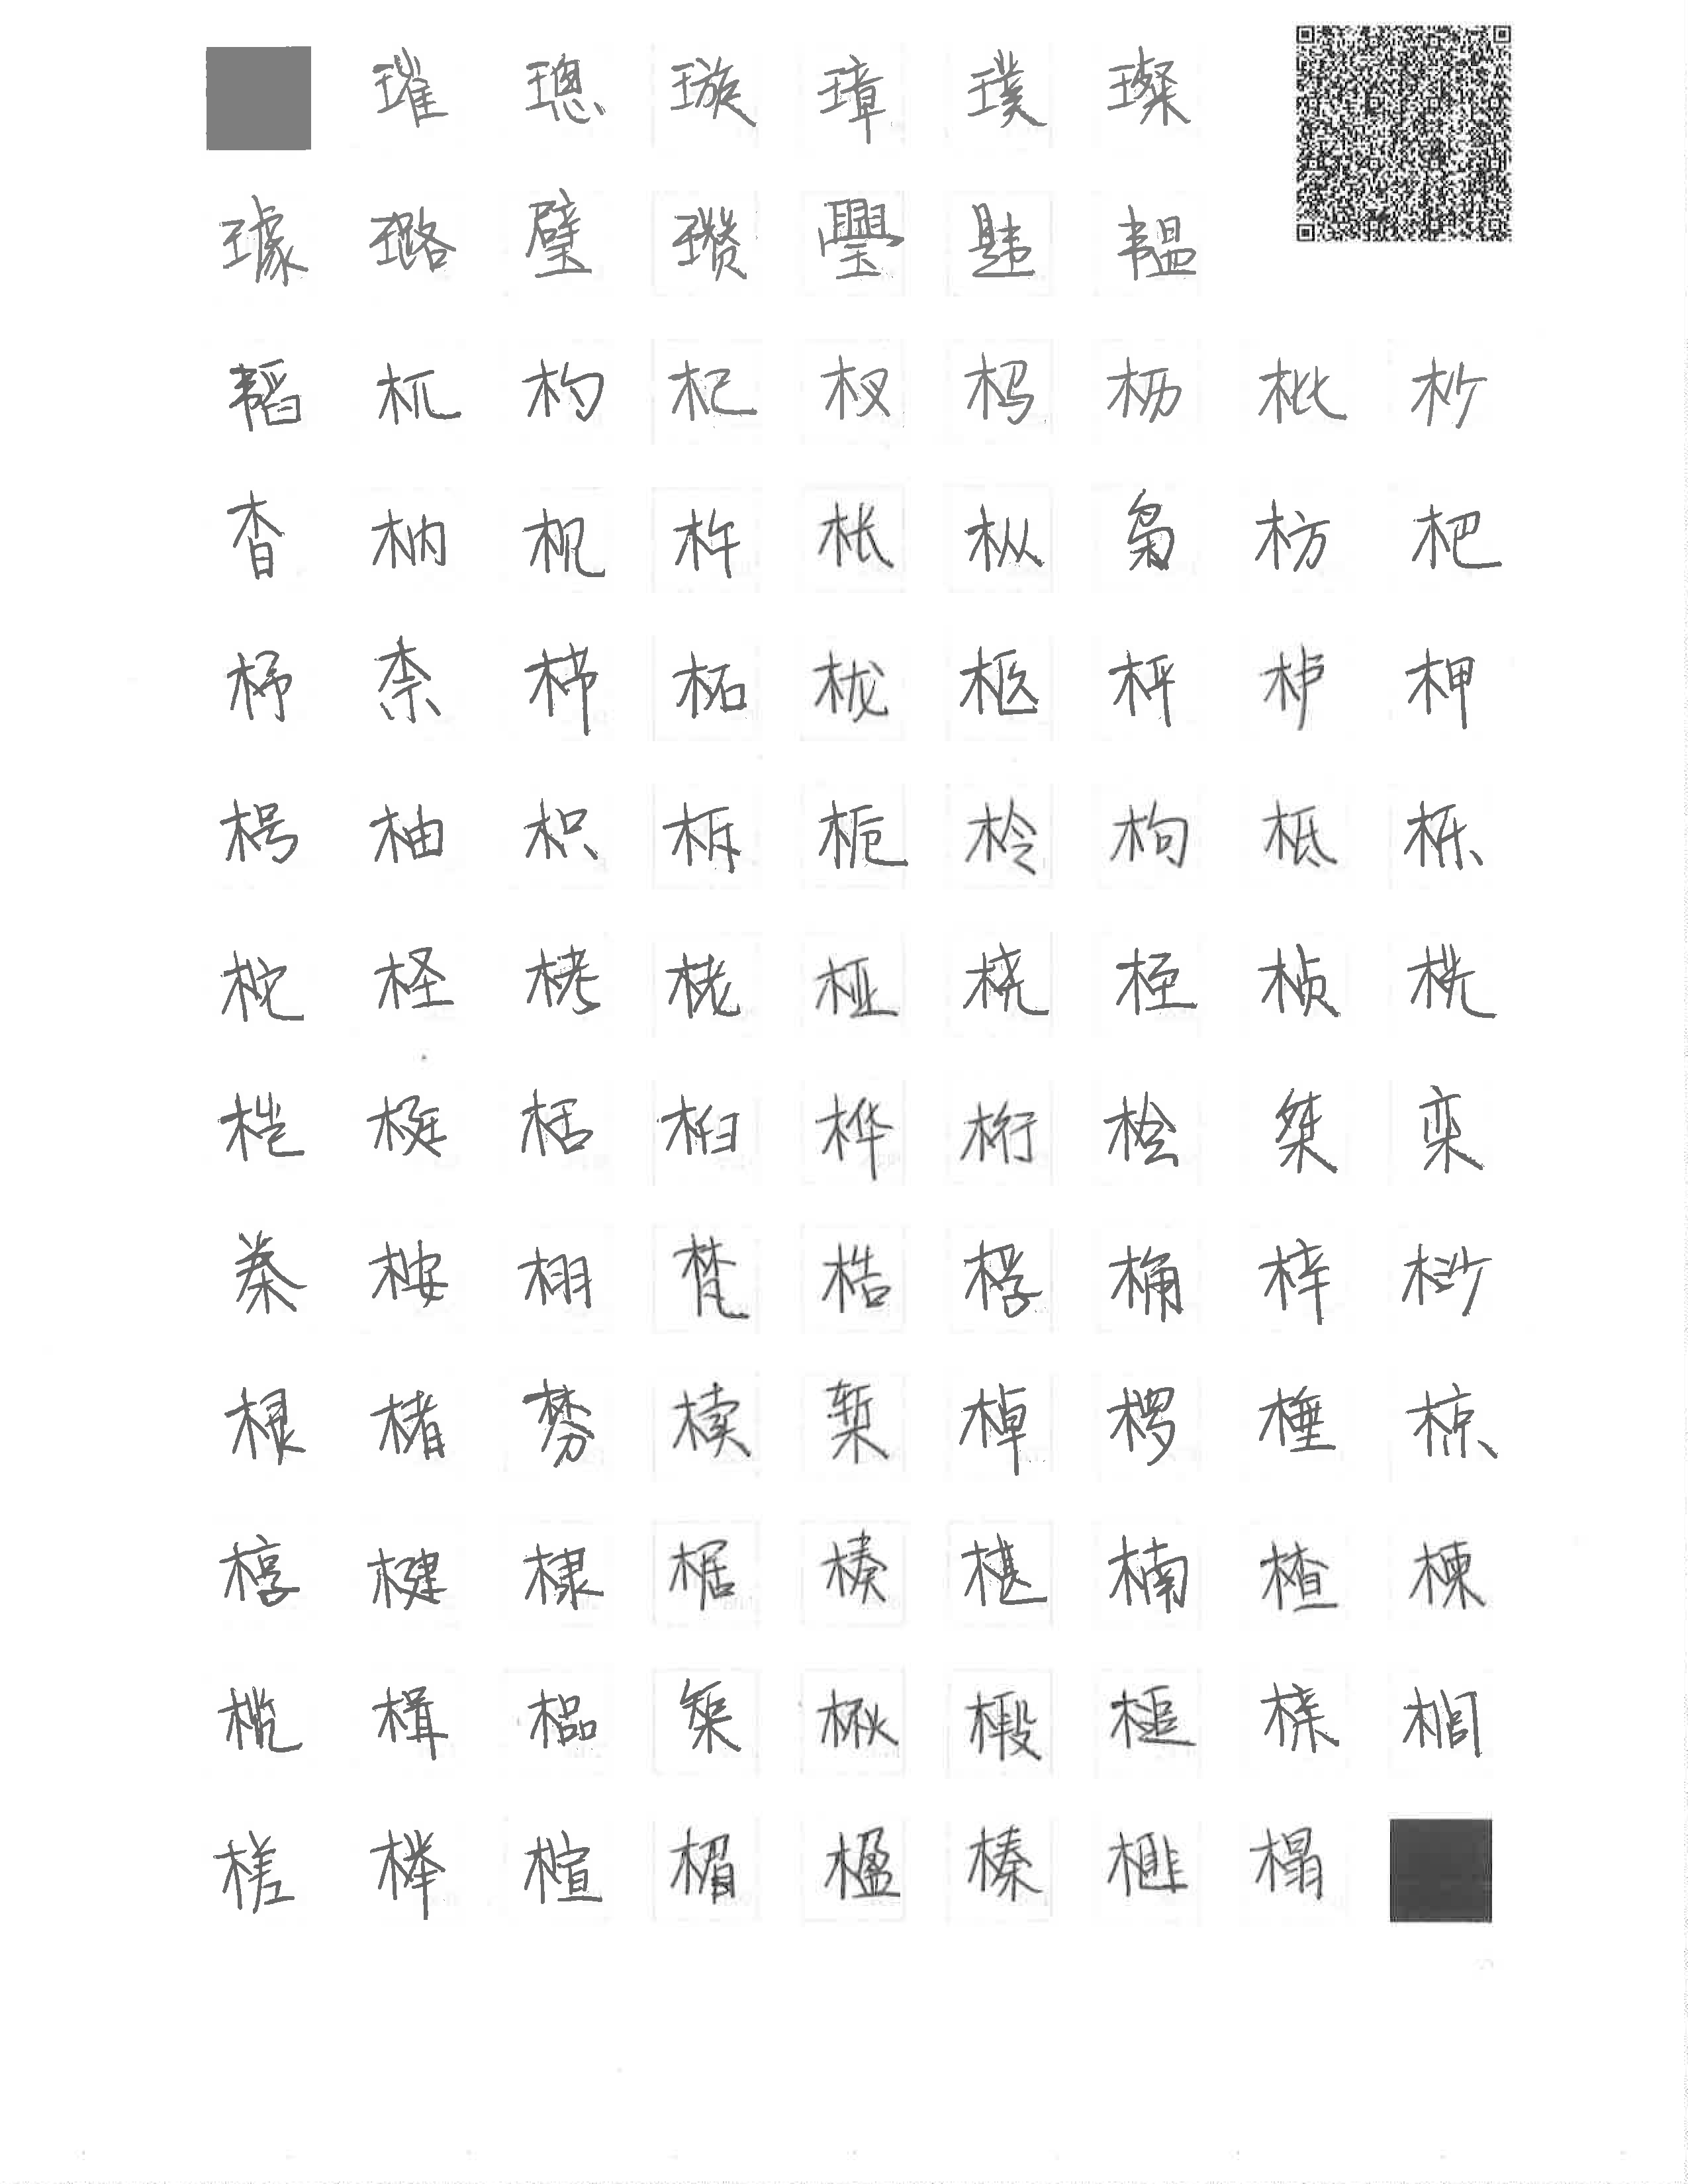 璀璁璇璋璞璨
璩璐璧瓒璺韪韫
韬杌杓杞杈杩枥枇杪
杳枘枧杵枨枞枭枋杷
杼柰栉柘栊柩枰栌柙
枵柚枳柝栀柃枸柢栎
柁柽栲栳桠桡桎桢桄
桤梃栝桕桦桁桧桀栾
桊桉栩梵梏桴桷梓桫
棂楮棼椟椠棹椤棰椋
椁楗棣椐楱椹楠楂楝
榄楫榀榘楸椴槌榇榈
槎榉楦楣楹榛榧榻